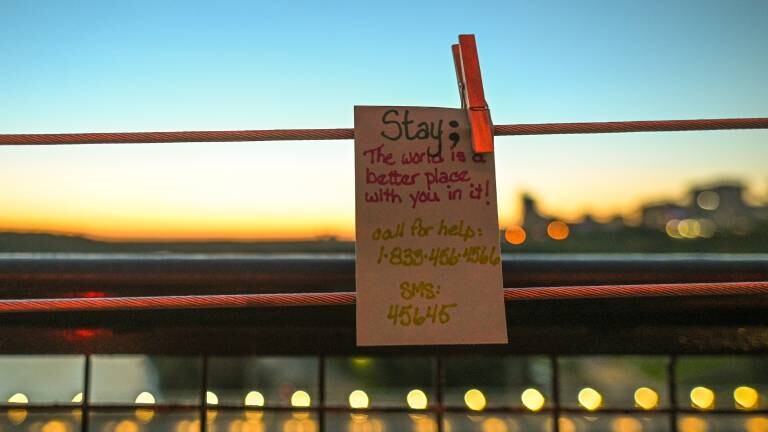 Stay;
The world is a
better place
with you in it!
call for help:
1·833·456·4566
SMS:
45645